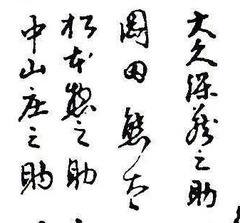 大久保彦之助
岡田熊吉
松本惣之助
中山庄之助